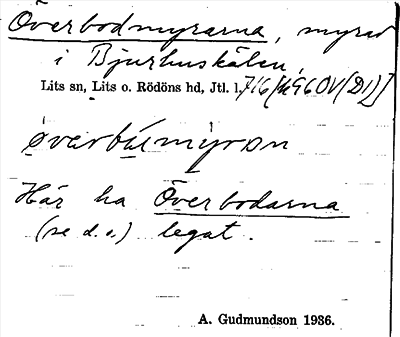 Överbodmyrarna, myrar
i Bjurhuskälen,
Lits sn, Lits o. Rödöns hd, Jtl. l.
øvarbúmỳrɒn
Här ha Överbodarna
(se d.o.) legat.
A. Gudmundson 1936.